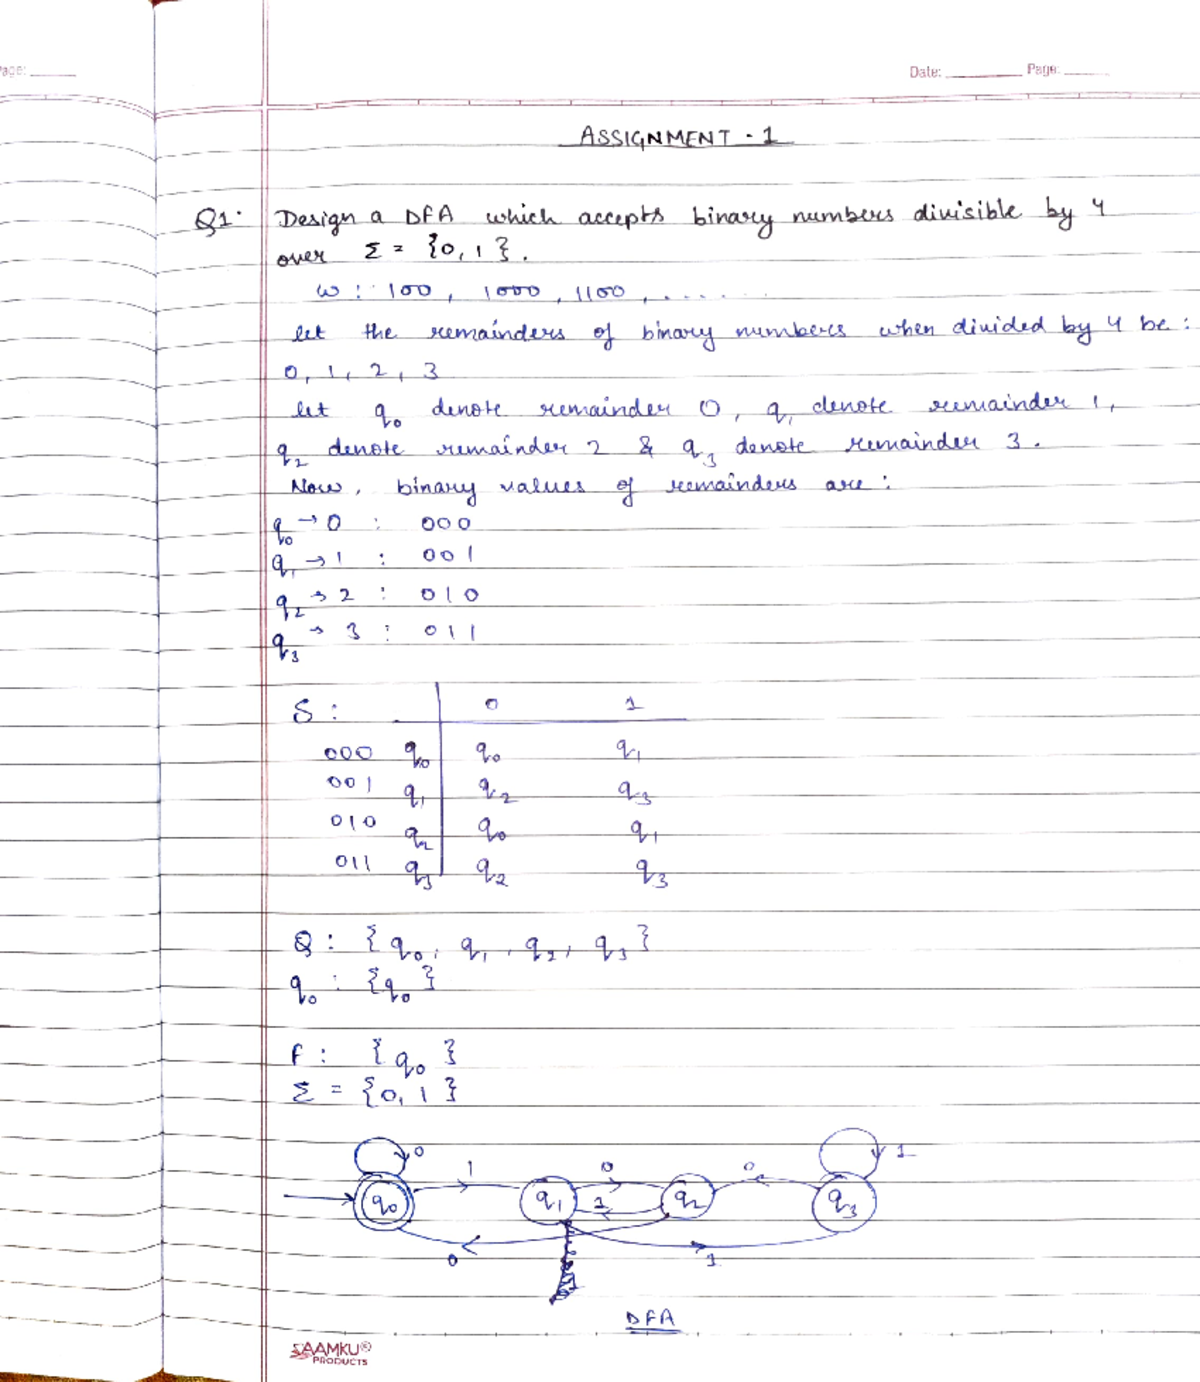 Page:
Date: Page:
ASSIGNMENT - 1
Q1. Design a DFA which accepts binary numbers divisible by 4
over Σ = {0, 1}.
w : 100, 1000, 1100, .....
let the remainders of binary numbers when divided by 4 be :
0, 1, 2, 3
let q0 denote remainder 0, q1 denote remainder 1,
q2 denote remainder 2 & q3 denote remainder 3.
Now, binary values of remainders are :
q0 → 0 : 000
q1 → 1 : 001
q2 → 2 : 010
q3 → 3 : 011
δ : 0 1
000 q0 q0 q1
001 q1 q2 q3
010 q2 q0 q1
011 q3 q2 q3
Q : {q0, q1, q2, q3}
q0 : {q0}
F : {q0}
Σ = {0, 1}
0 1
1 0 0
q0 q1 1 q2 q3
0 1
DFA
SAAMKU®
PRODUCTS